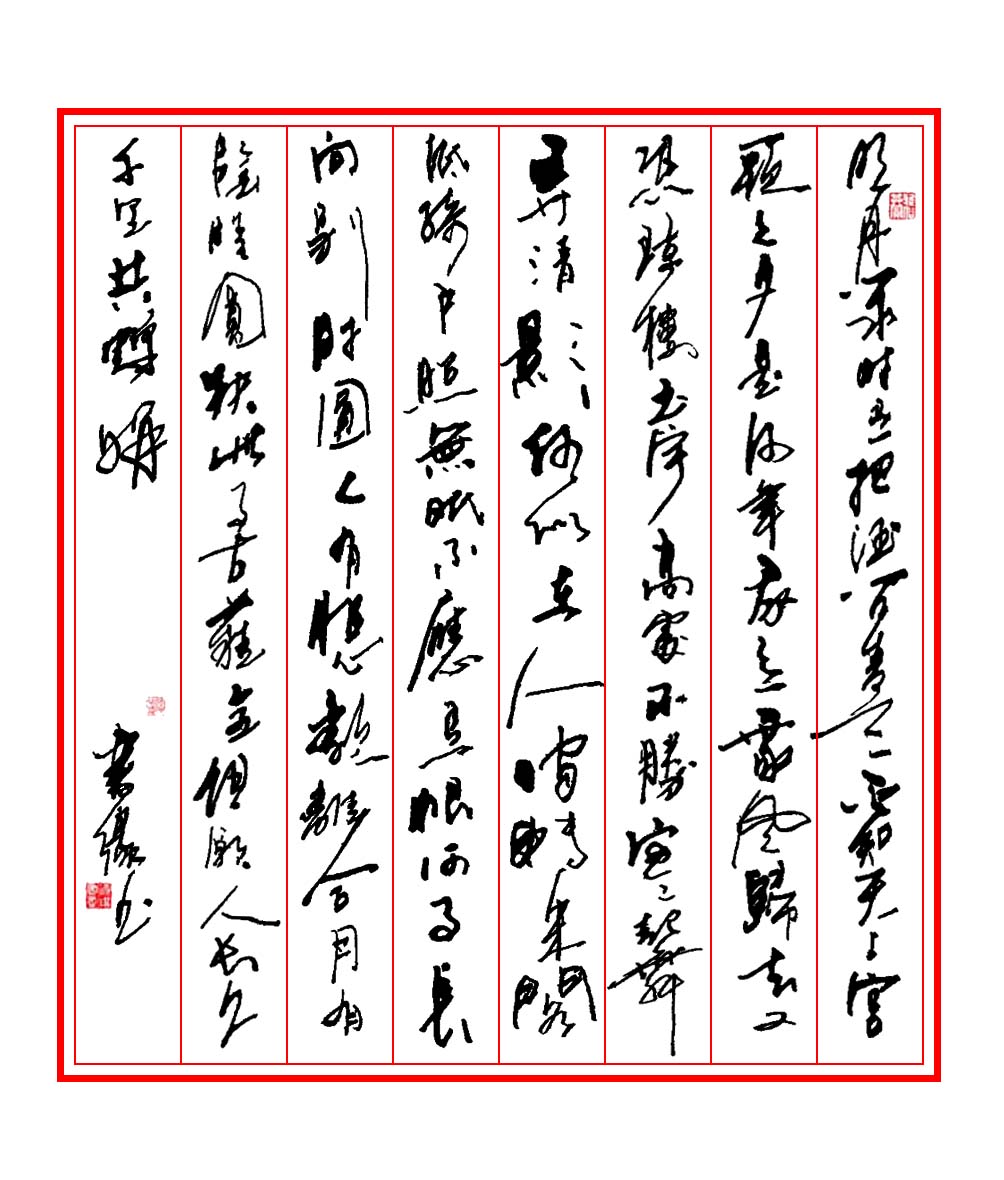 明月幾时有把酒问青天不知天上宫
闕今夕是何年我欲乘风歸去又
恐瓊樓玉宇高處不勝寒起舞
弄清影何似在人間轉朱閣
低綺户照無眠不應有恨何事長
向别时圓人有悲歡離合月有
陰晴圓缺此事古難全但願人長久
千里共嬋娟